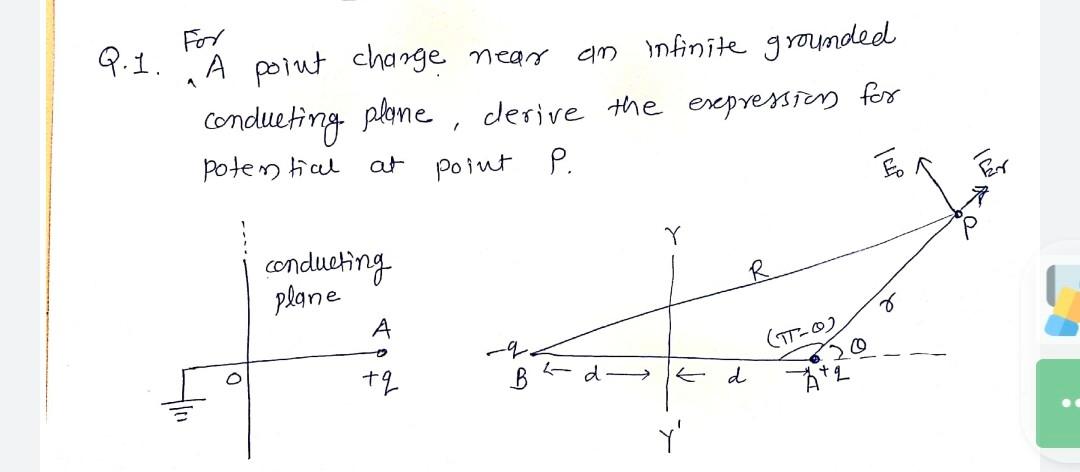 For
Q.1. A point charge near an infinite grounded
conducting plane, derive the expression for
potential at point P.
E₀
Er
P
Y
conducting
plane
R
A
r
(π-θ)
θ
-q
O
+q
B
d
d
A
+q
Y'